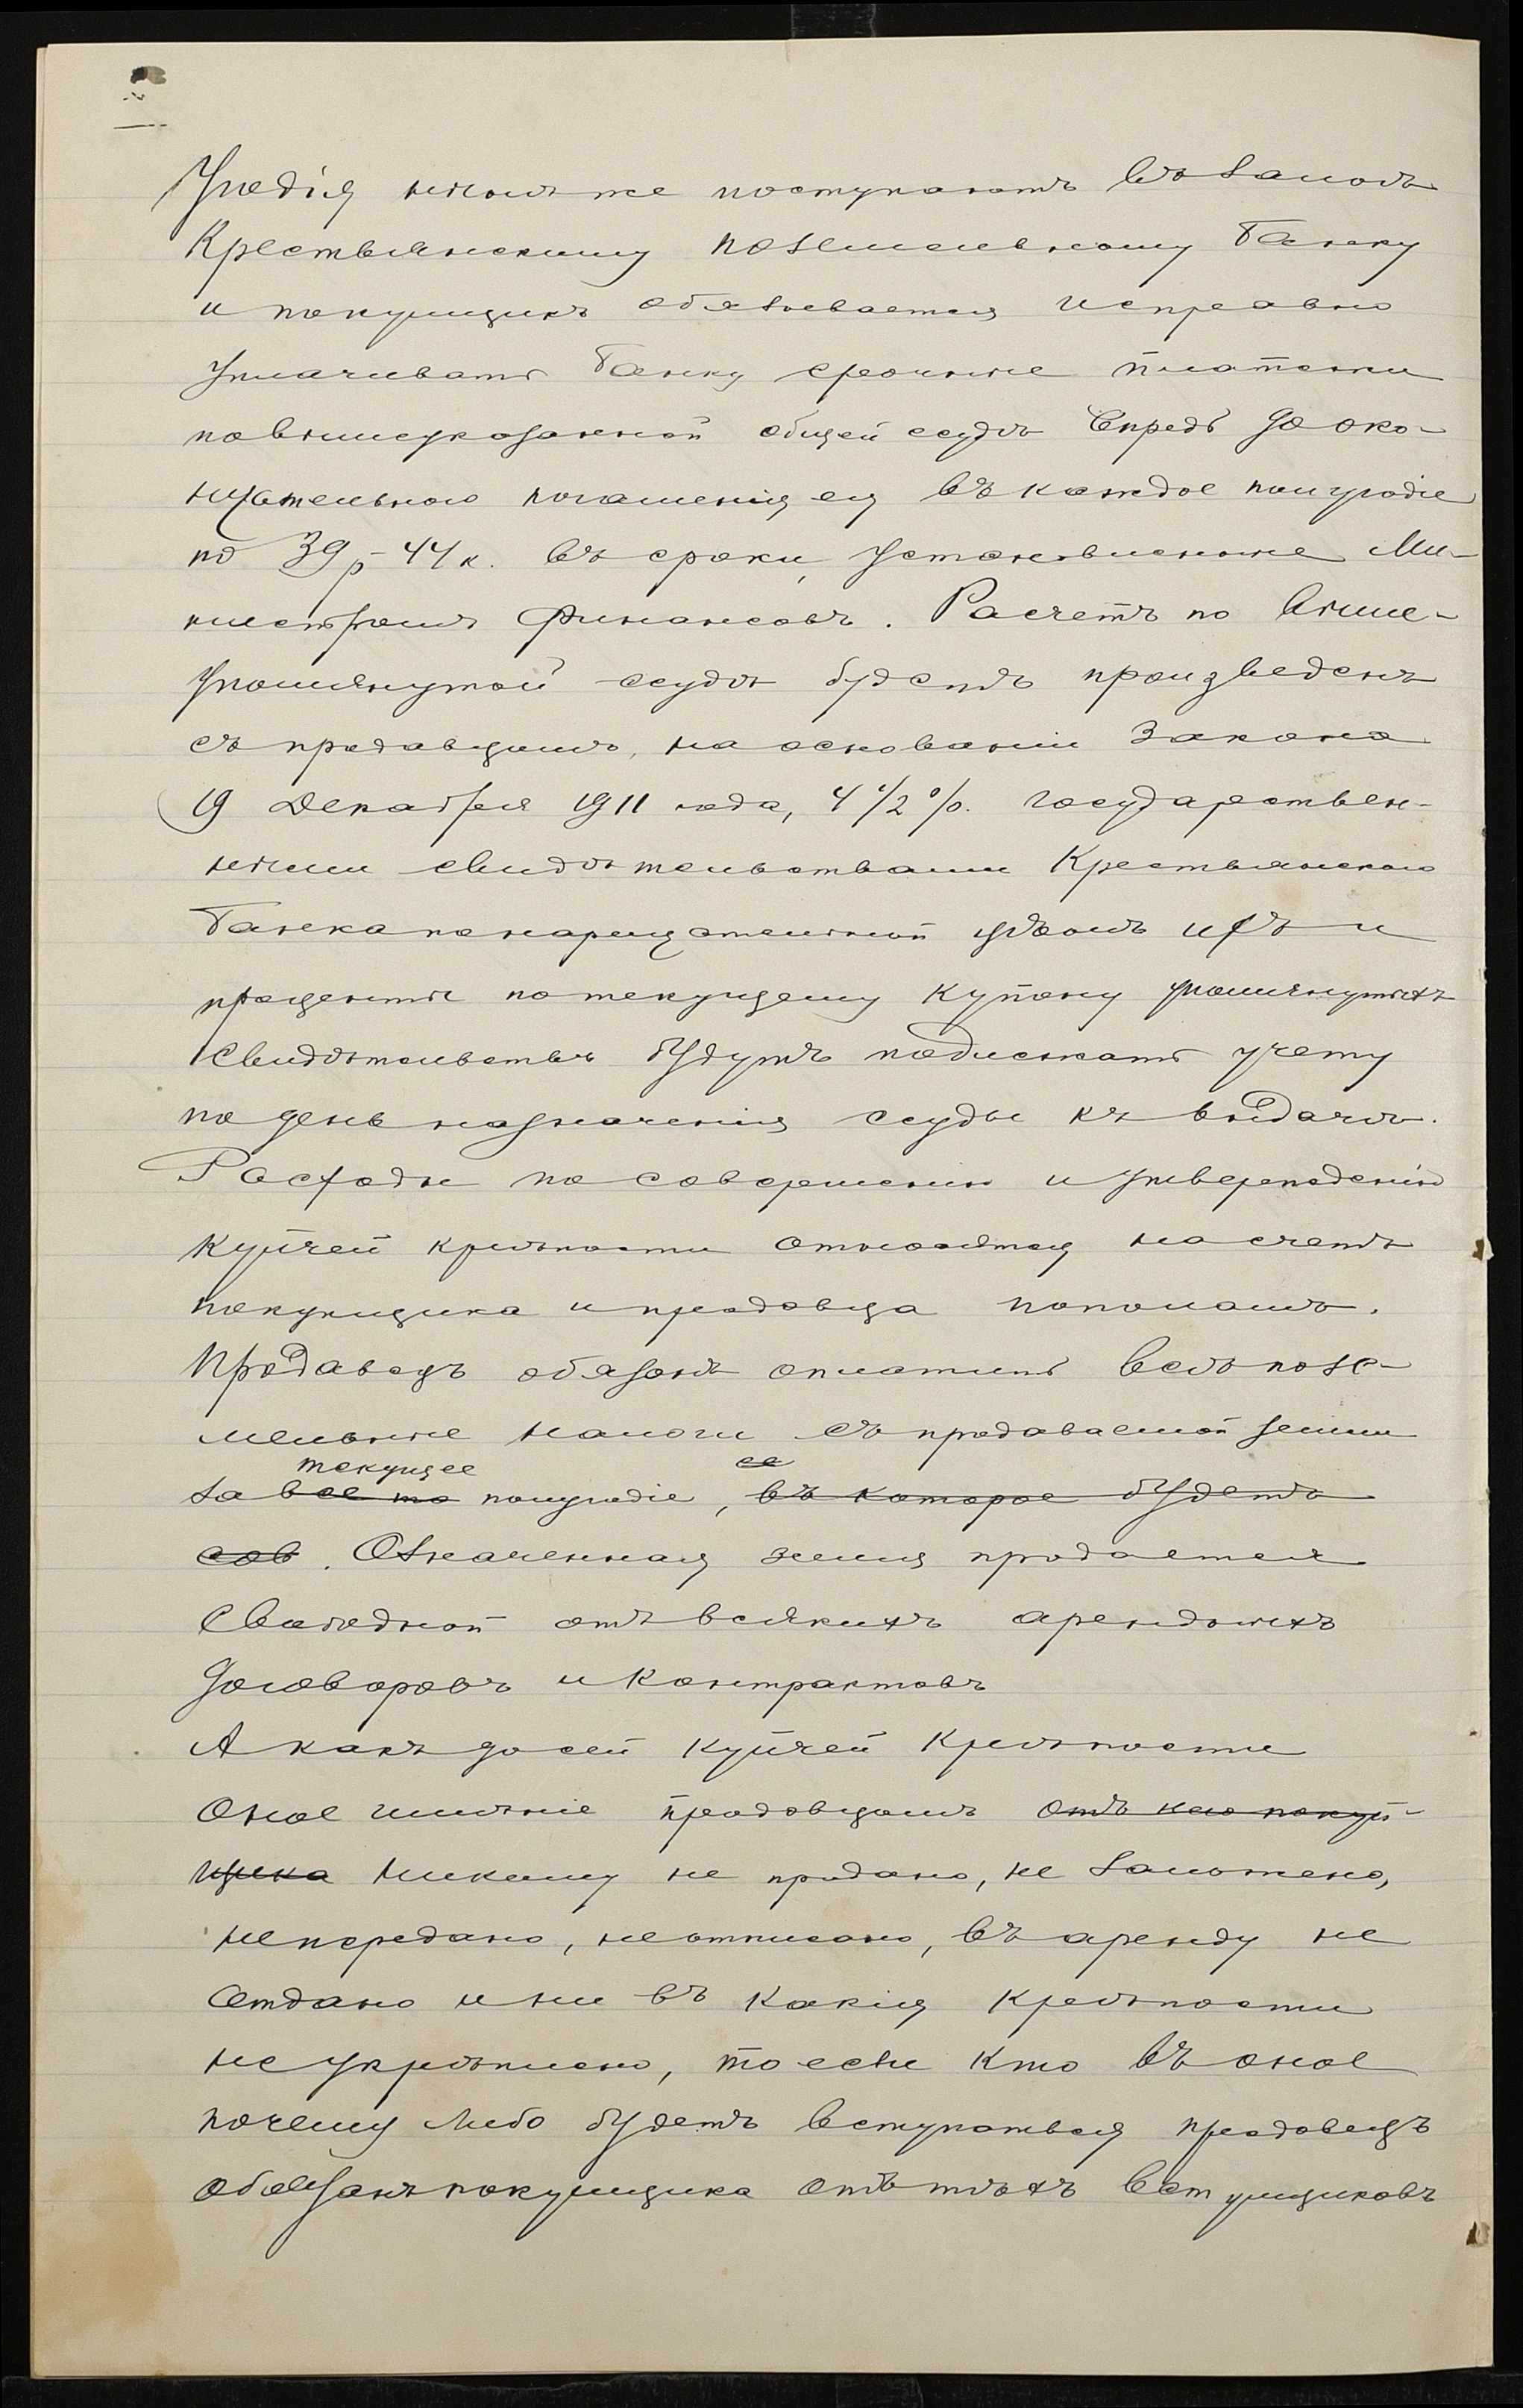 Угодія нынѣ же поступаютъ въ залогъ
Крестьянскому Поземельному Банку
и покупщикъ обязывается исправно
уплачивать Банку срочные платежи
по вышеуказанной общей ссудѣ впредь до око-
нчательного погашенія ея въ каждое полугодіе
по 39 р. 44 к. въ сроки, установленные Ми-
нистромъ Финансовъ. Расчетъ по выше-
упомянутой ссудѣ будетъ произведенъ
съ продавцомъ, на основаніи Закона
19 Декабря 1911 года, 4 1/2 %. государствен-
ными свидѣтельствами Крестьянскаго
Банка по нарицательной цѣнѣ ихъ и
проценты по текущему купону упомянутыхъ
свидѣтельствъ будутъ подлежать учету
по день назначенія ссуды къ выдачѣ.
Расходы по совершенію и утвержденію
купчей крѣпости относятся на счетъ
покупщика и продавца пополамъ.
Продавецъ обязанъ оплатить всѣ позе-
мельные налоги съ продаваемой земли
текущее
за все то полугодіе, въ которое будетъ
сов. Означенная земля продается
свободной отъ всякихъ арендныхъ
договоровъ и контрактовъ
А какъ до сей купчей крѣпости
оное имѣніе продавцомъ отъ него покуп-
щика никому не продано, не заложено,
не передано, не отписано, въ аренду не
отдано и ни въ какія крѣпости
не укрѣплено, то если кто въ оное
почему либо будетъ вступаться продавецъ
обязанъ покупщика отъ тѣхъ вступщиковъ